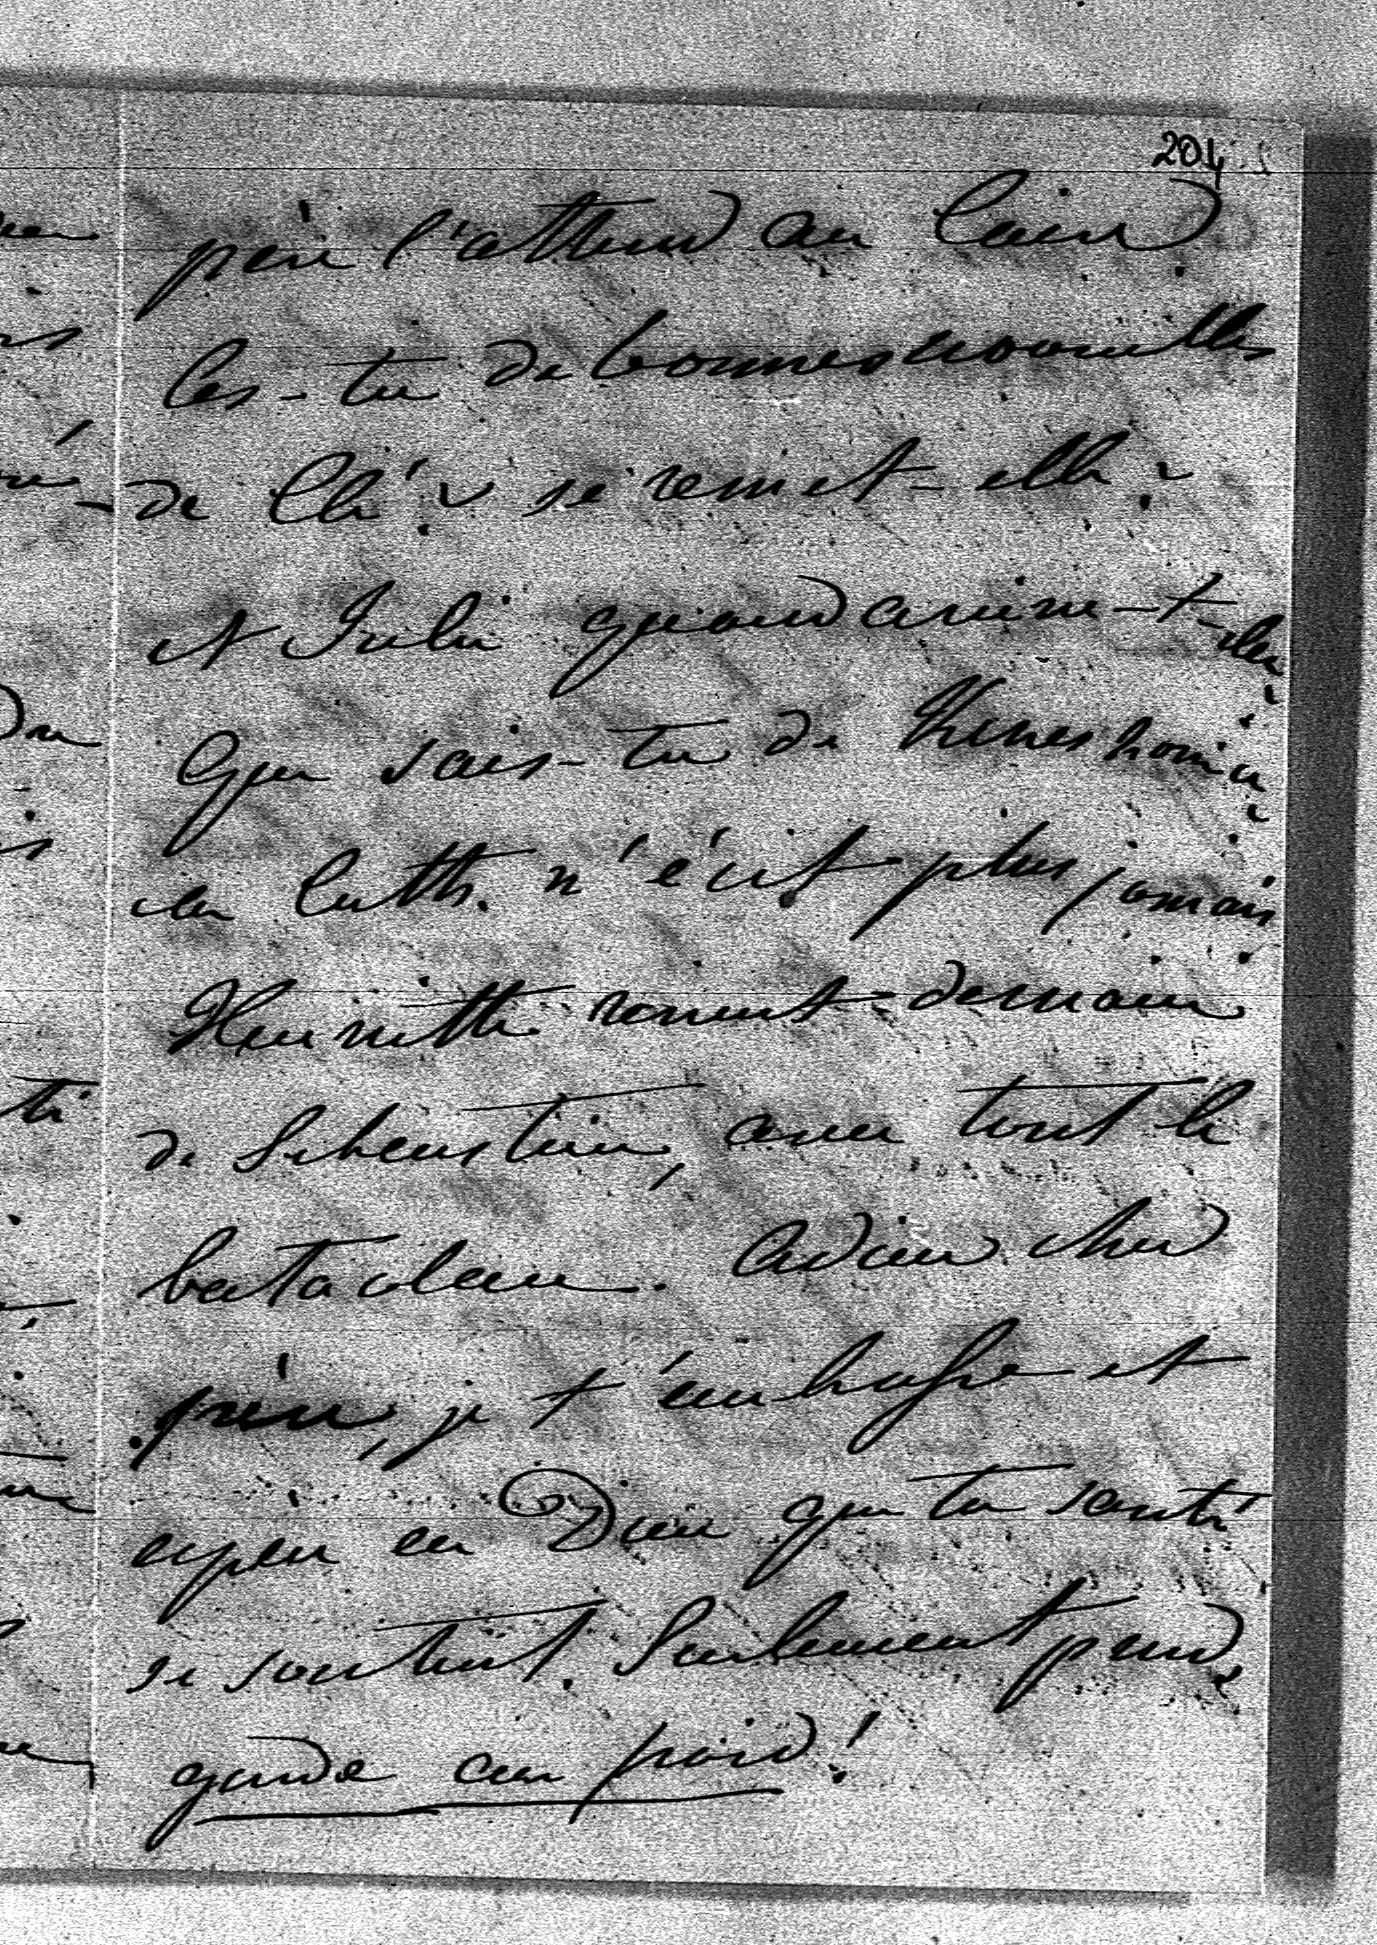 204
père l'attend au Caire
As-tu de bonnes nouvelles
de Clé? se remet-elle?
et Julie quand arrive-t-elle?
Que sais-tu de
elle n'écrit plus jamais
Henriette revient demain
de avec tout le
bataclan. Adieu cher
frère, je t'embrasse et
espère en Dieu que ta santé
se soutient. Seulement prend
garde au froid!